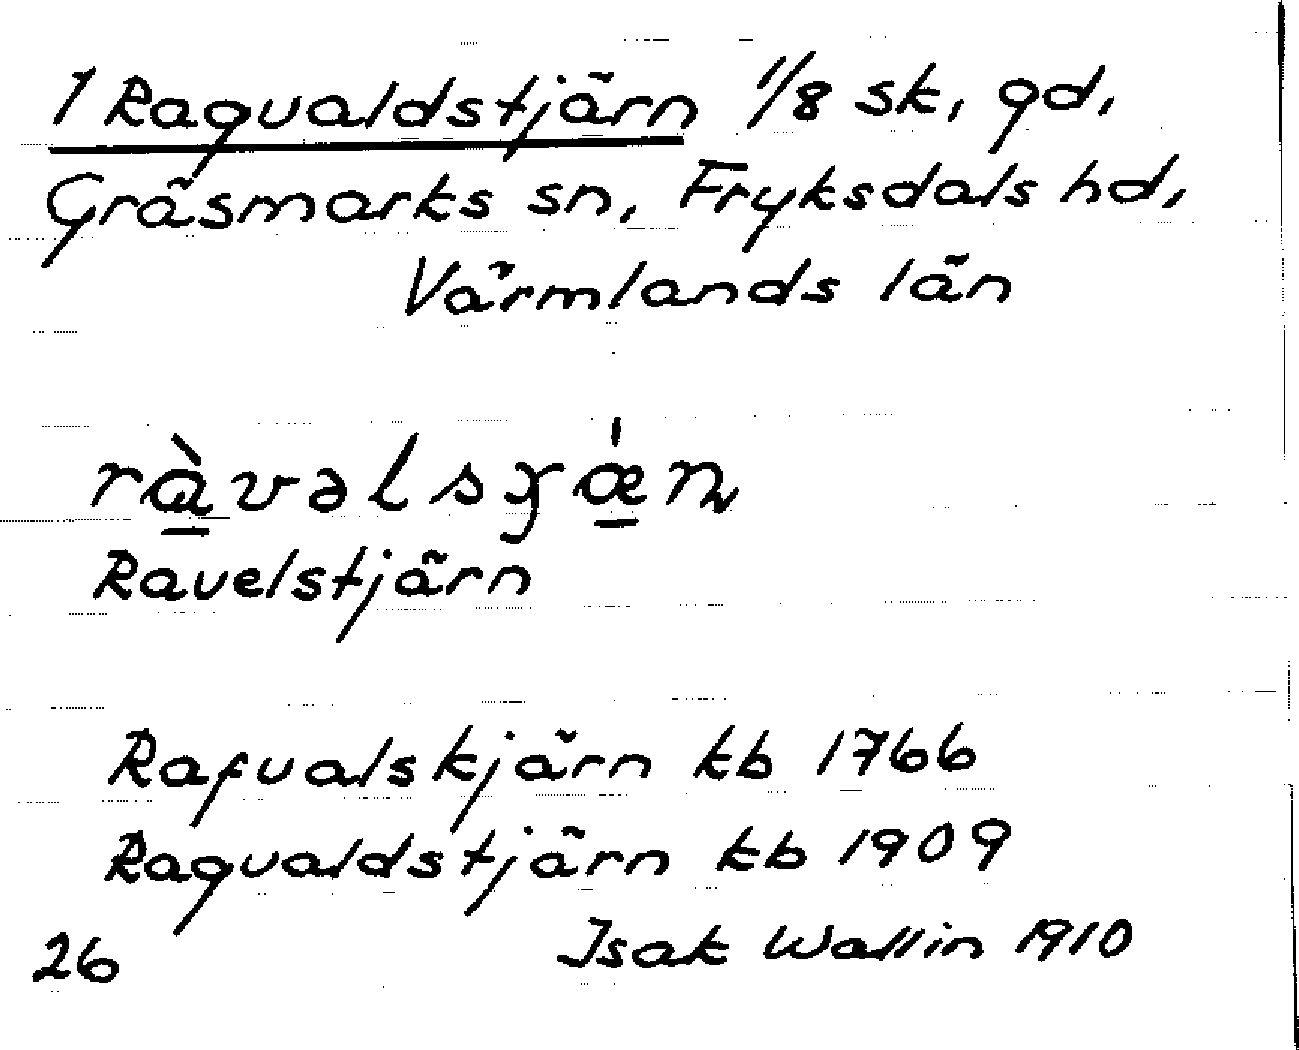 1 Ragvaldstjärn 1/8 sk, gd,
Gräsmarks sn, Fryksdals hd,
Värmlands län
ràvəlsɣǽn
Ravelstjärn
Rafvalskjärn kb 1766
Ragvaldstjärn kb 1909
26 Isak Wallin 1910